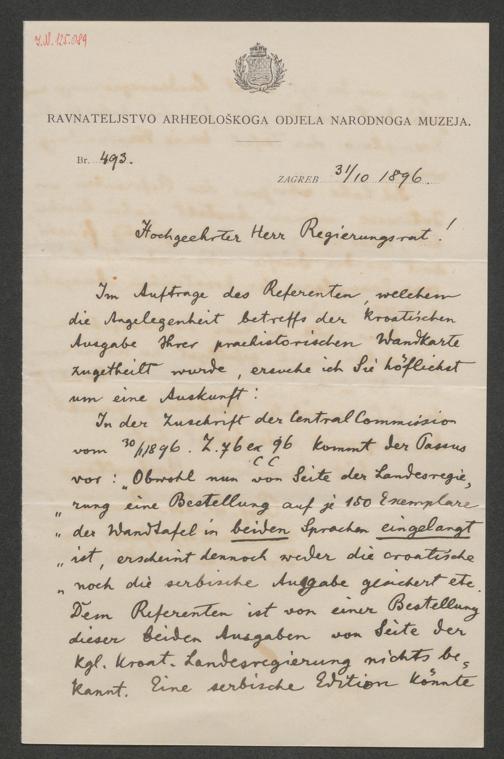 I.N. 125.089
RAVNATELJSTVO ARHEOLOŠKOGA ODJELA NARODNOGA MUZEJA.
Br. 493.
ZAGREB 31/10 1896.
Hochgeehrter Herr Regierungsrat!
Im Auftrage des Referenten, welchem
die Angelegenheit betreffs der kroatischen
Ausgabe Ihrer praehistorischen Wandkarte
zugetheilt wurde, ersuche ich Sie höflichst
um eine Auskunft:
In der Zuschrift der Central Commission
vom 30/1 1896. Z. 76 ex 96 kommt der Passus
vor: „Obwohl nun von Seite der Landesregie=
„rung eine Bestellung auf je 150 Exemplare
„der Wandtafel in beiden Sprachen eingelangt
„ist, erscheint dennoch weder die croatische
„noch die serbische Ausgabe gesichert etc.
Dem Referenten ist von einer Bestellung
dieser beiden Ausgaben von Seite der
kgl. kroat. Landesregierung nichts be=
kannt. Eine serbische Edition könnte